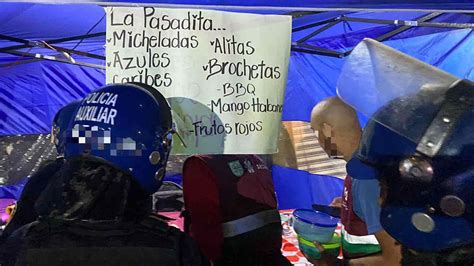 La Pasadita...
Micheladas
Azules
Caribes
Alitas
Brochetas
-BBQ
-Mango Habane
-Frutos rojos
POLICIA
AUXILIAR